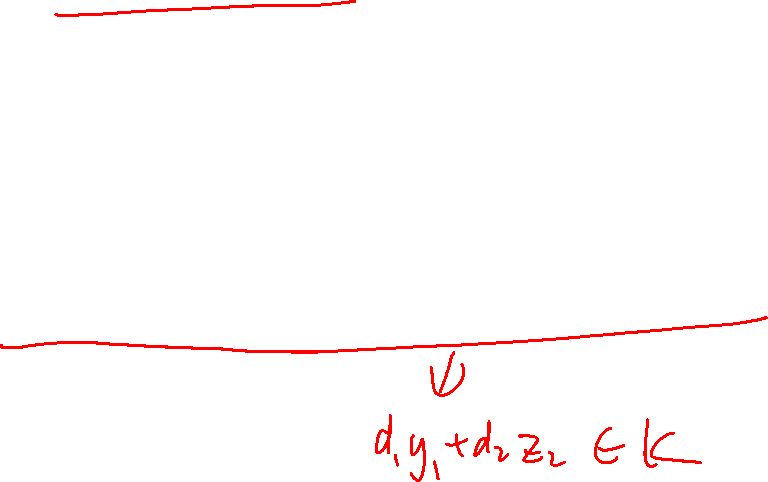 d₁y₁+d₂z₂ ∈ K